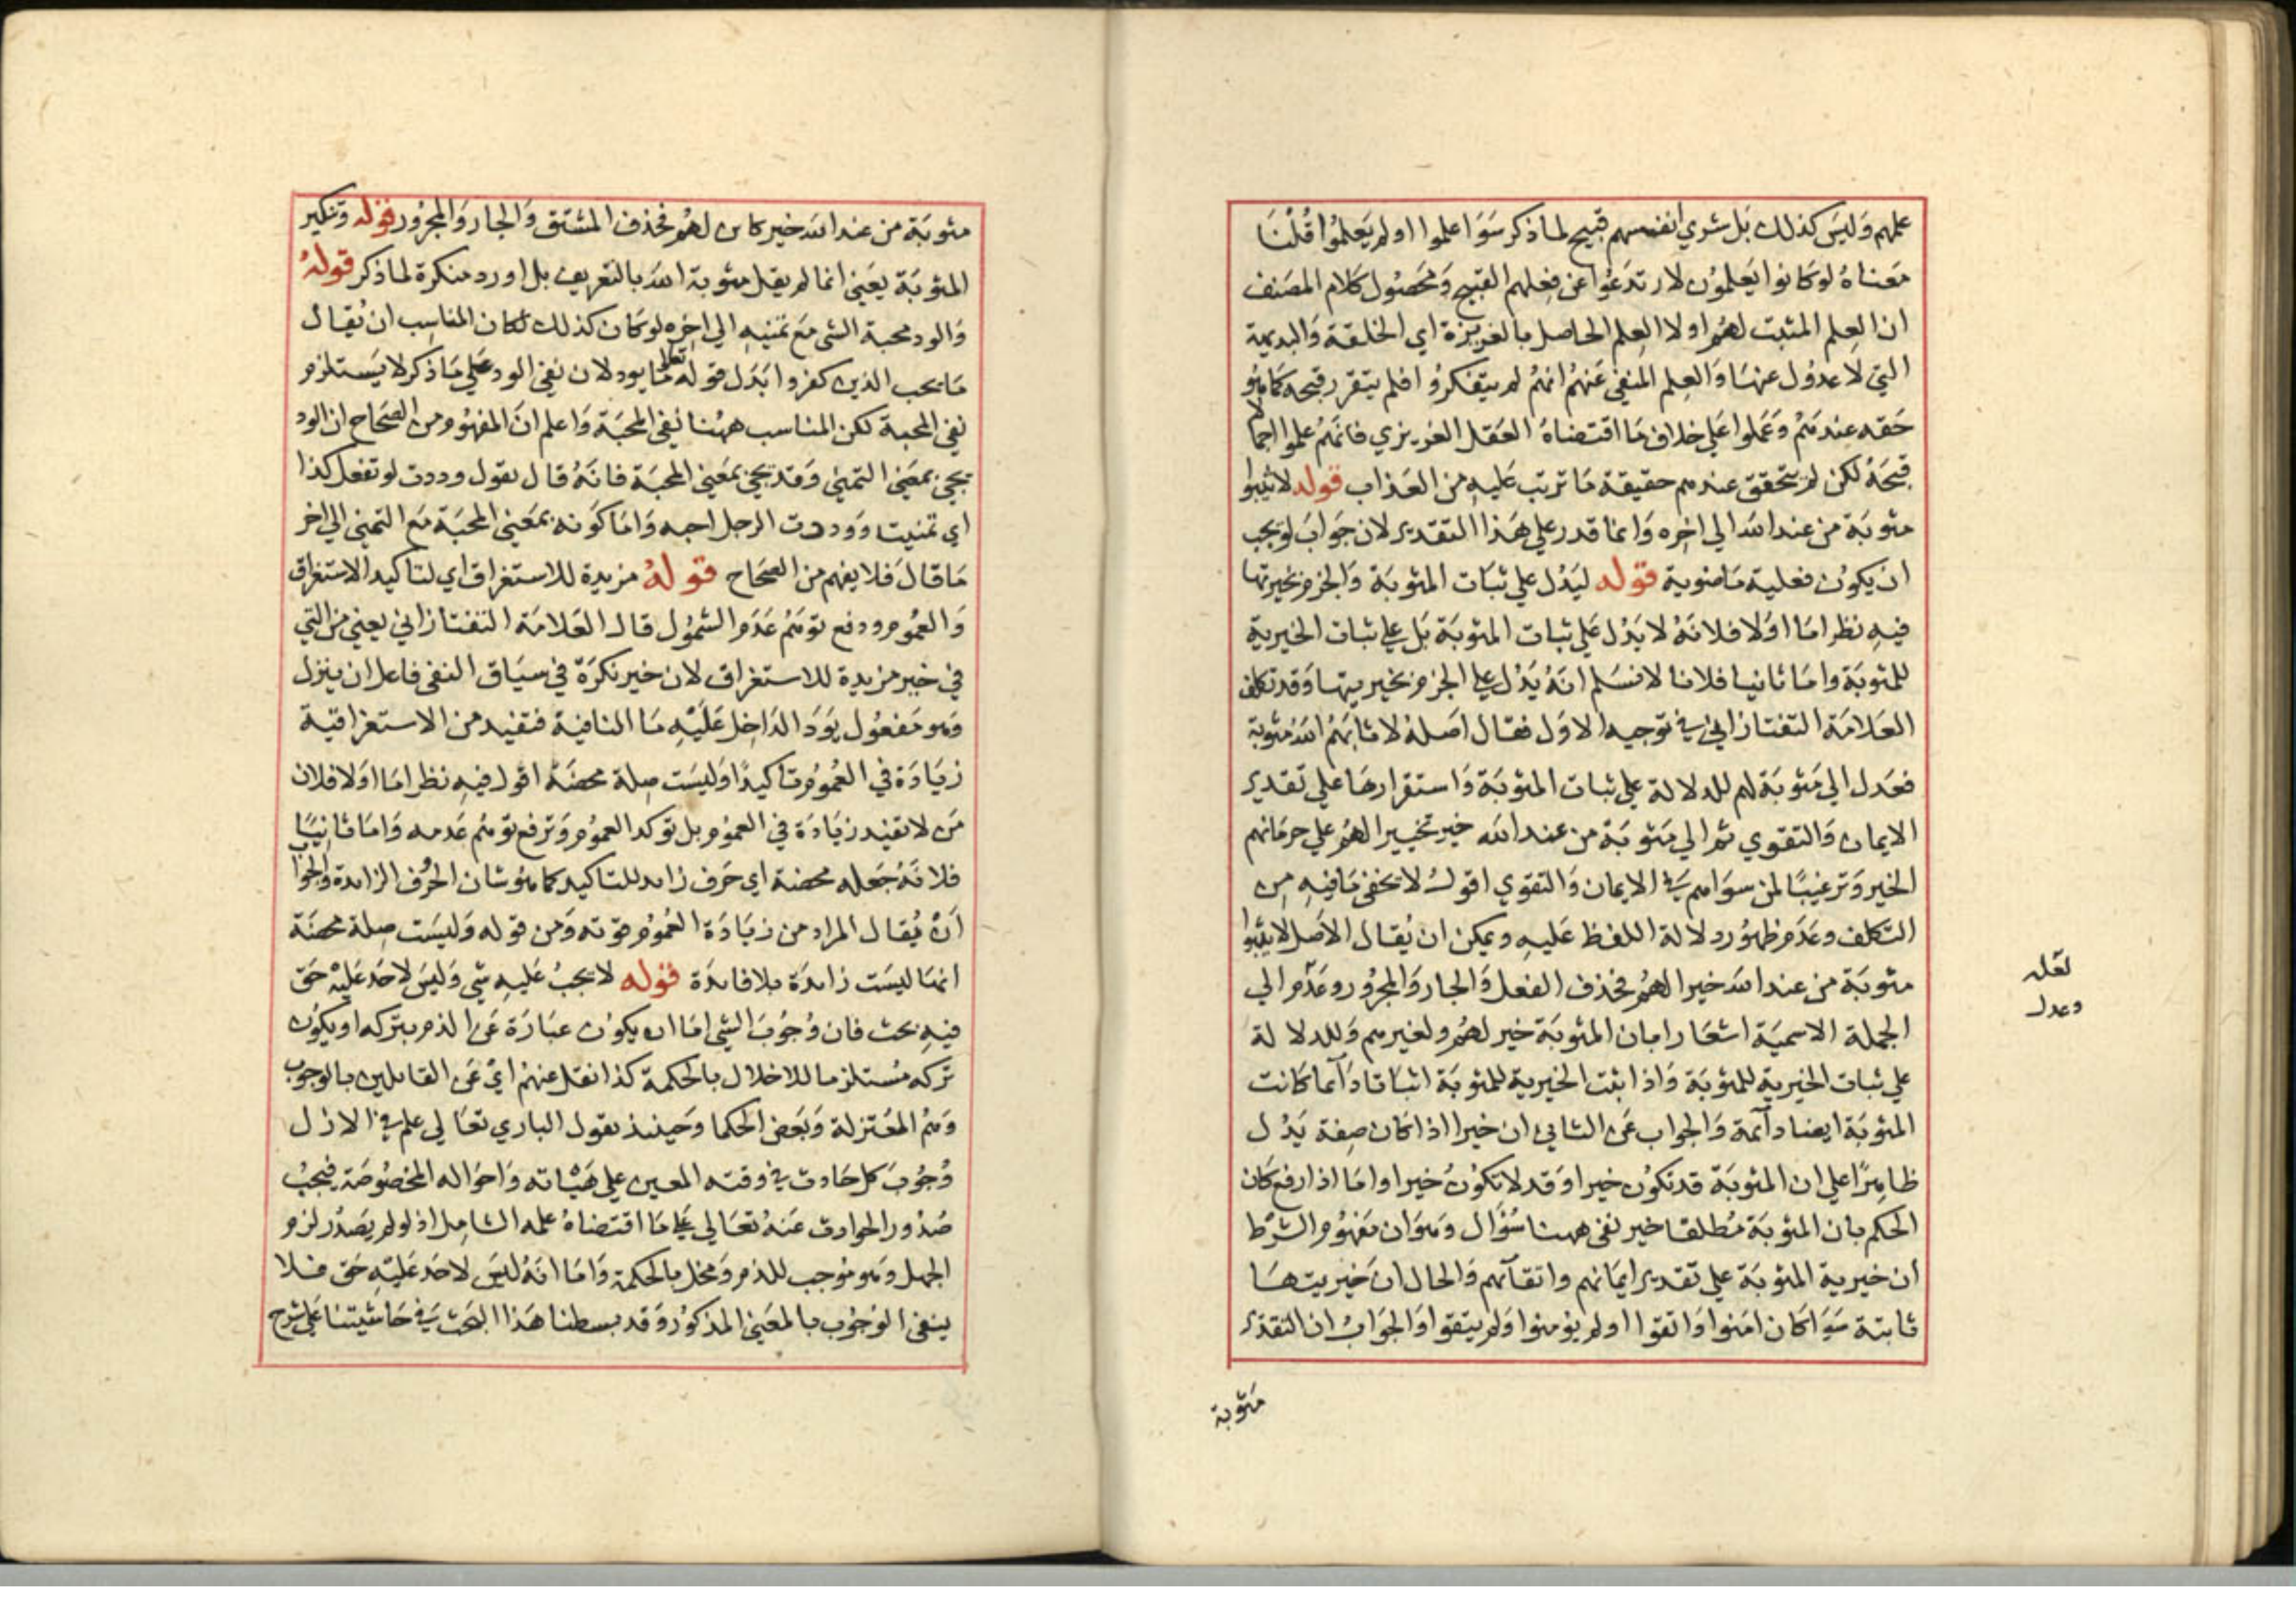 علمهم وَليسَ كذلك بَل شري انفسهم قبيح لما ذكر سَوَا علموا او لم يَعلمُوا قُلنَا
مَعناهُ لو كانوا يَعلمُون لارتدَعُوا عن فِعلهم القبيح وَمحصُول كلام المصَنف
ان العِلم المثبت لهُم اولا العِلم الحاصل بالغريزة اي الخلقة وَالبديهية
التي لا عدُول عنهَا وَالعِلم المنفي عَنهُم انهمُ لم يتفكرُوا فلم يتقرر قبحه كما هُو
حَقه عِندهمُ وَعَملوا عَلي خلاف مَا اقتضاهُ العَقل الغريزي فانهَمُ علموا اجمالا
قبحَهُ لكن لم يتحقق عندهم حقيقة مَا ترتب عَليهِ من العَذاب قوله لا ثيبوا
مثوبَة من عند الله الي اخِره وَانما قدر علي هَذا التقدير لان جَوابَ لو يجب
ان يكوُن فعلية مَاضوية قوله ليَدُل علي ثبَات المثوبَة وَالجزم بخيريتها
فيهِ نظر امَا اوَلا فلانَهُ لا يَدُل عَلي ثبات المثوبَة بَل علي ثبات الخيرية
للمثوبَة وامَا ثانيا فلانا لا نسَلم انَهُ يَدُل علي الجزم بخيريتهَا وَقد تكلف
العَلامَة التفتازاني في توجيه الاوَل فقال اصَلهُ لاثابَهمُ اللهُ مثوبة
فعَدل الي مَثوبَة لهم للدلالة علي ثبات المثوبَة وَاستقرارهَا علي تقدير
الايمان وَالتقوي ثم الي مَثوبَة من عند الله خير تحسيرا لهمُ علي حرمَانهم
الخير وَترغيبًا لمن سوَاهم في الايمان وَالتقوي اقول لا يخفي مَا فيهِ من
التكلف وعَدَم ظهوُر دلالة اللفظ عَليهِ ويمكن ان يُقال الاصَل لاثيبوا
مثوبَة من عند الله خيرا لهمُ فحُذف الفعل وَالجار وَالمجرُور وعَدم الي
الجملة الاسميَة اشعَارا بان المثوبَة خير لهمُ ولغيرهم وَللدلالة
علي ثبات الخيرية للمثوبَة وَاذا ثبت الخيرية للمثوبَة اثبَاتا دَآئما كانت
المثوبَة ايضا دآئمة وَالجواب عَن الثاني ان خيرا اذا كان صِفة يَدُل
ظاهِرًا علي ان المثوبَة قد تكوُن خيرا وَقد لا تكوُن خيرا وامَا اذا رفع كان
الحكم بان المثوبَة مُطلقا خير نفي ههنا سُؤال وَهوَ ان مَفهُوم الشرْط
ان خيرية المثوبَة علي تقدير ايمَانهم واتقآئهم وَالحال انَ خيريتهَا
ثابتة سَوَا كان امَنوا وَاتقوا او لم يؤمنوا وَلم يتقوا وَالجوَابُ ان التقدير
مَثوبة
لعَله
وعدل
مثوبَة من عند الله خير كائن لهمُ فحُذف المشتق وَالجار وَالمجرُور قوله وَتنكير
المثوبَة يعَني انما لم يقل مثوبة الله بالتعريف بل اورد منكرة لما ذكر قولهُ
وَالود محبة الشي مَع تمنيهِ الي اخِره لو كان كذلك لكان المناسِب ان يُقال
مَا يحب الذين كفروا بَدَل قوله تعالى مَا يود لان نفي الود عَلي مَا ذكر لا يَستلزم
نفي المحبة لكن المناسب ههُنا نفي المحبَة وَاعلم انَ المفهُوم من الصحَاح ان الود
يجي بمعَني التمني وَقد يجي بمعَني المحبَة فانَهُ قال نقول وددت لو تفعل كذا
اي تمنيت وَوددت الرجل احبه وَامَا كَونه بمعَني المحبَة مَع التمني الي اخر
مَا قالَ فلا يفهم من الصحَاح قولهُ مزيدة للاستغراق اي لتاكيد الاستغراق
وَالعمُوم ودفع توهمُ عَدَم الشموُل قال العَلامَة التفتازاني يعني من التي
في خبر مزيدة للاستغراق لان خير نكرَة في سيَاق النفي فاعل ان ينزل
وَهو مَفعُول يَوَد الدَاخِل عَليْهِ مَا النافية فتفيد من الاستغراقية
زيَادَة في العُموُم تاكيدًا وَليسَت صِلة محضَة اقول فيهِ نظر امَا اوَلا فلان
مَن لا تفيد زيَادَة في العموُم بل توكد العموُم وَترفع توهمُ عَدمه وَامَا ثانيًا
فلانَهُ جَعله محضة اي حَرف زائد للتاكيد كما هوُ شان الحرُف الزائدة وَالجوَاب
اَنْ يُقال المراد من زيَادَة العُموُم قوته وَمن قوله وَليسَت صِلة محضَة
انهَا ليسَت زائدَة بلا فائدَة قوله لا يجبُ عَليهِ شي وَليسَ لاحَد عَليْهْ حَق
فيهِ بحث فان وُجوُبَ الشي امَا ان يكوُن عبَارَة عَن الذم بتركه او يكوُن
تركه مُستلزما للاخلال بالحكمة كذا نقل عنهمُ ايْ عَن القايلين بالوجوُب
وَهمُ المعَتزلة وَبَعض الحكما وَحينئذ نقول الباري تعَالي علم في الازل
وُجوُبَ كل حَادث في وقته المعين علي هَيْاته وَاحوَاله المخصُوصَة فيجبُ
صُدُور الحوادث عَنهُ تعَالي علي مَا اقتضاهُ علمه الشامِل اذ لو لم يصَدُر لزم
الجهل وَهو موُجب للذم وَمخل بالحكمة وَامَا انَهُ ليسَ لاحَد عَليْهِ حَق فلا
ينفي الوُجوُب بالمعَني المذكوُر وَقد بسطنا هَذا البحَث في حَاشيتنا عَلي شرح